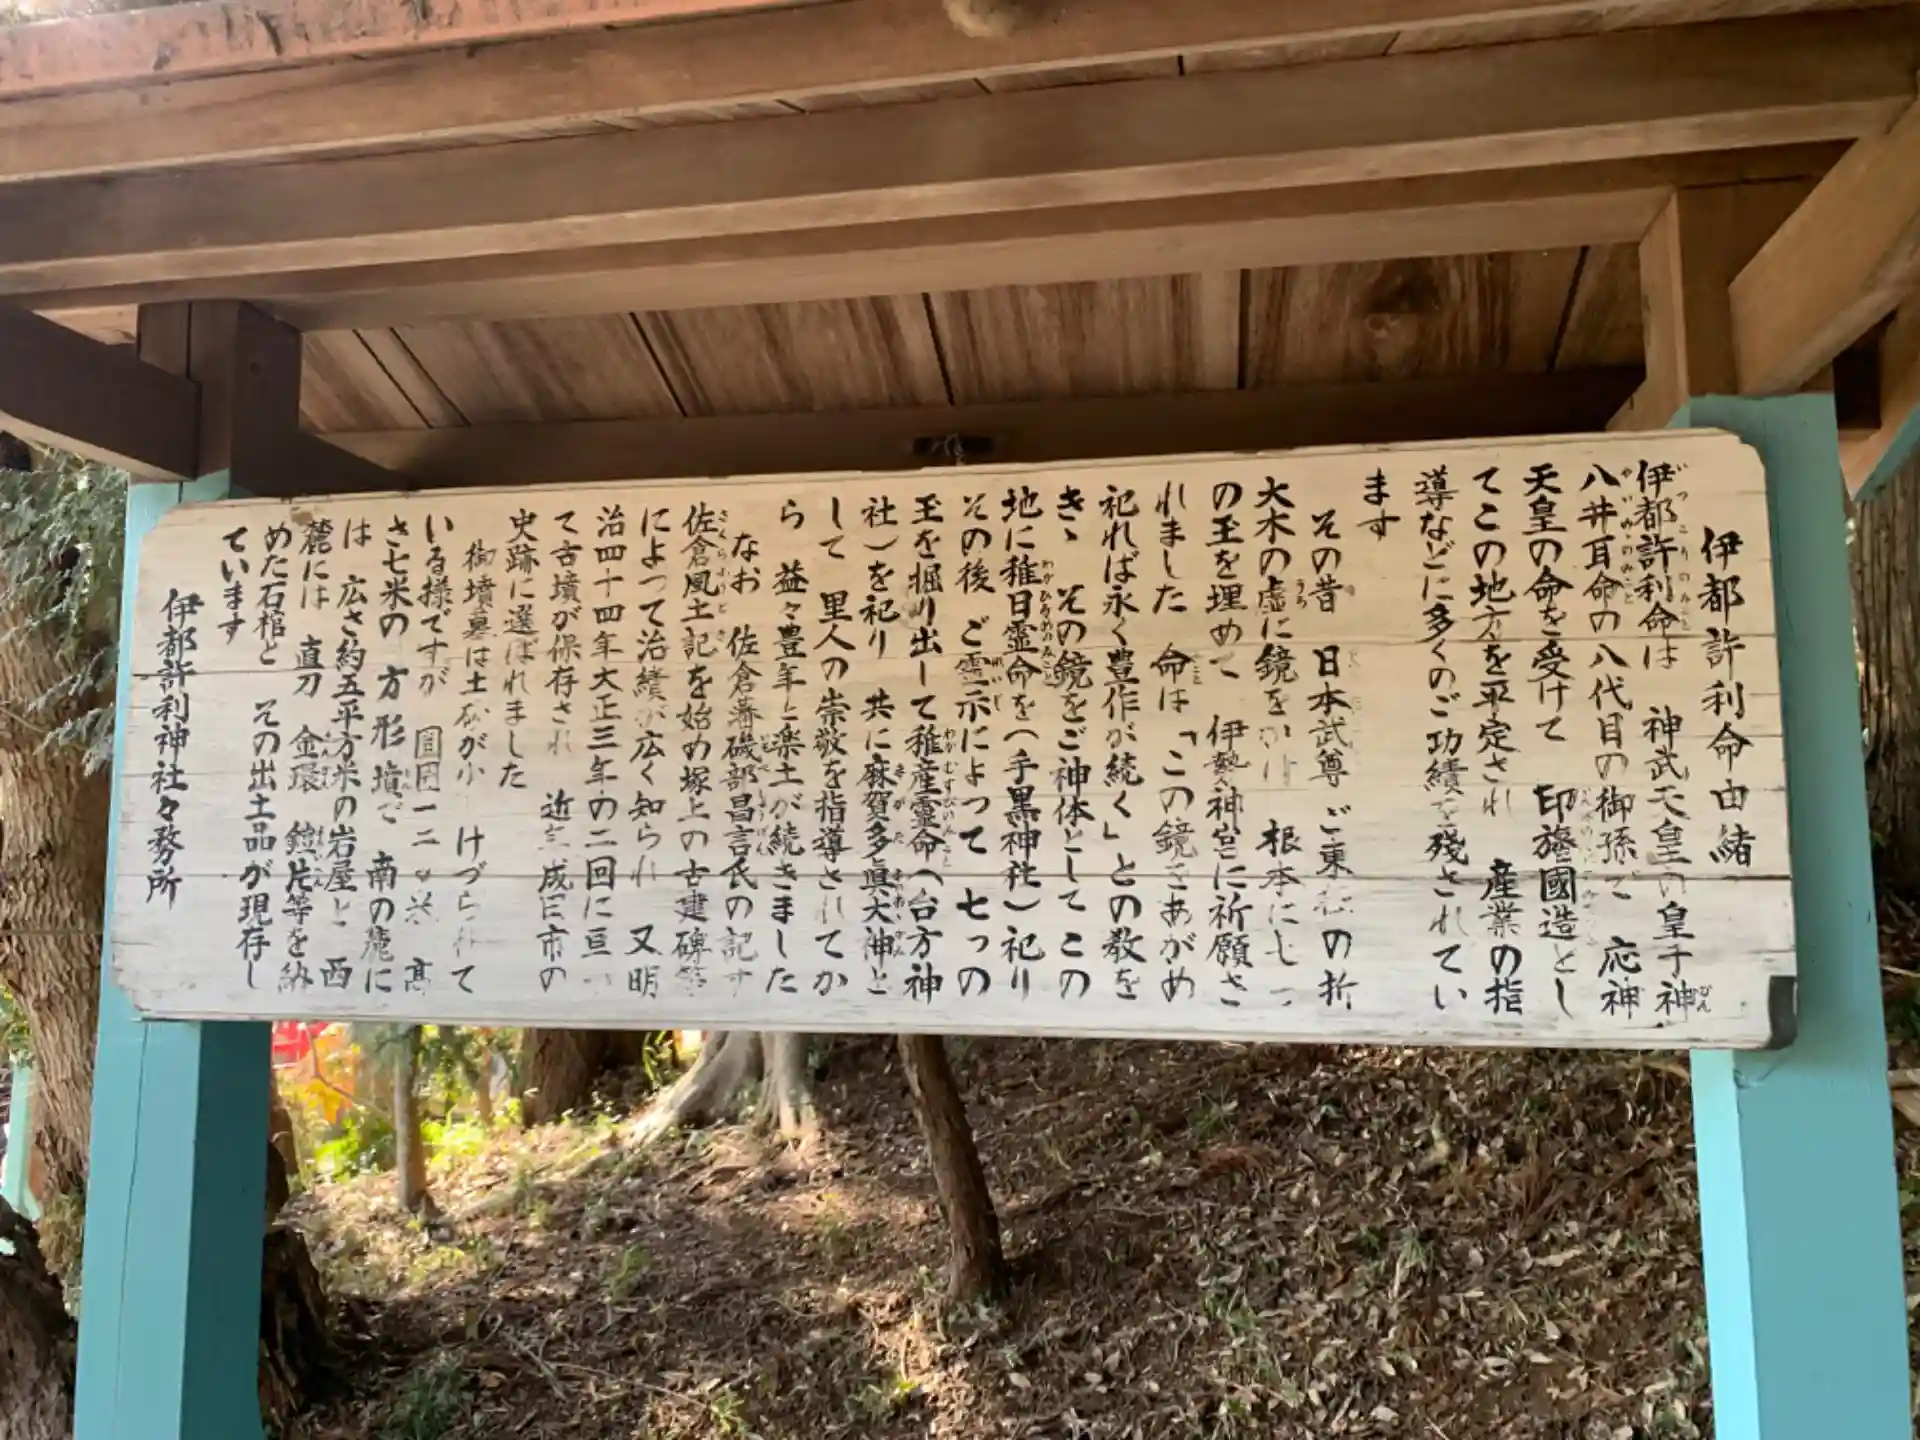 伊都許利命由緒
伊都許利命は　神武天皇の皇子神
八井耳命の八代目の御孫で　応神
天皇の命を受けて　印旛國造とし
てこの地方を平定され　産業の指
導などに多くのご功績を残されてい
ます
その昔　日本武尊　ご東征の折
大木の虚に鏡をかけ　根本に七つ
の玉を埋めて　伊勢神宮に祈願さ
れました　命は「この鏡をあがめ
祀れば永く豊作が続く」との教を
きゝ　その鏡をご神体としてこの
地に稚日霊命を（手黒神社）祀り
その後　ご霊示によって　七つの
玉を掘り出して稚産霊命（台方神
社）を祀り　共に麻賀多眞大神と
して　里人の崇敬を指導されてか
ら　益々豊年と楽土が続きました
なお　佐倉藩磯部昌言氏の記す
佐倉風土記を始め塚上の古建碑等
によって治績が広く知られ　又明
治四十四年大正三年の二回に亘っ
て古墳が保存され　近年成田市の
史跡に選ばれました
御墳墓は土砂が小　けづられて
いる様ですが　　　　米　高
さ七米の　方形墳で　南の麓に
は　広さ約五平方米の岩屋と　西
麓には　直刀　金環　鎧片等を納
めた石棺と　その出土品が現存し
ています
伊都許利神社々務所